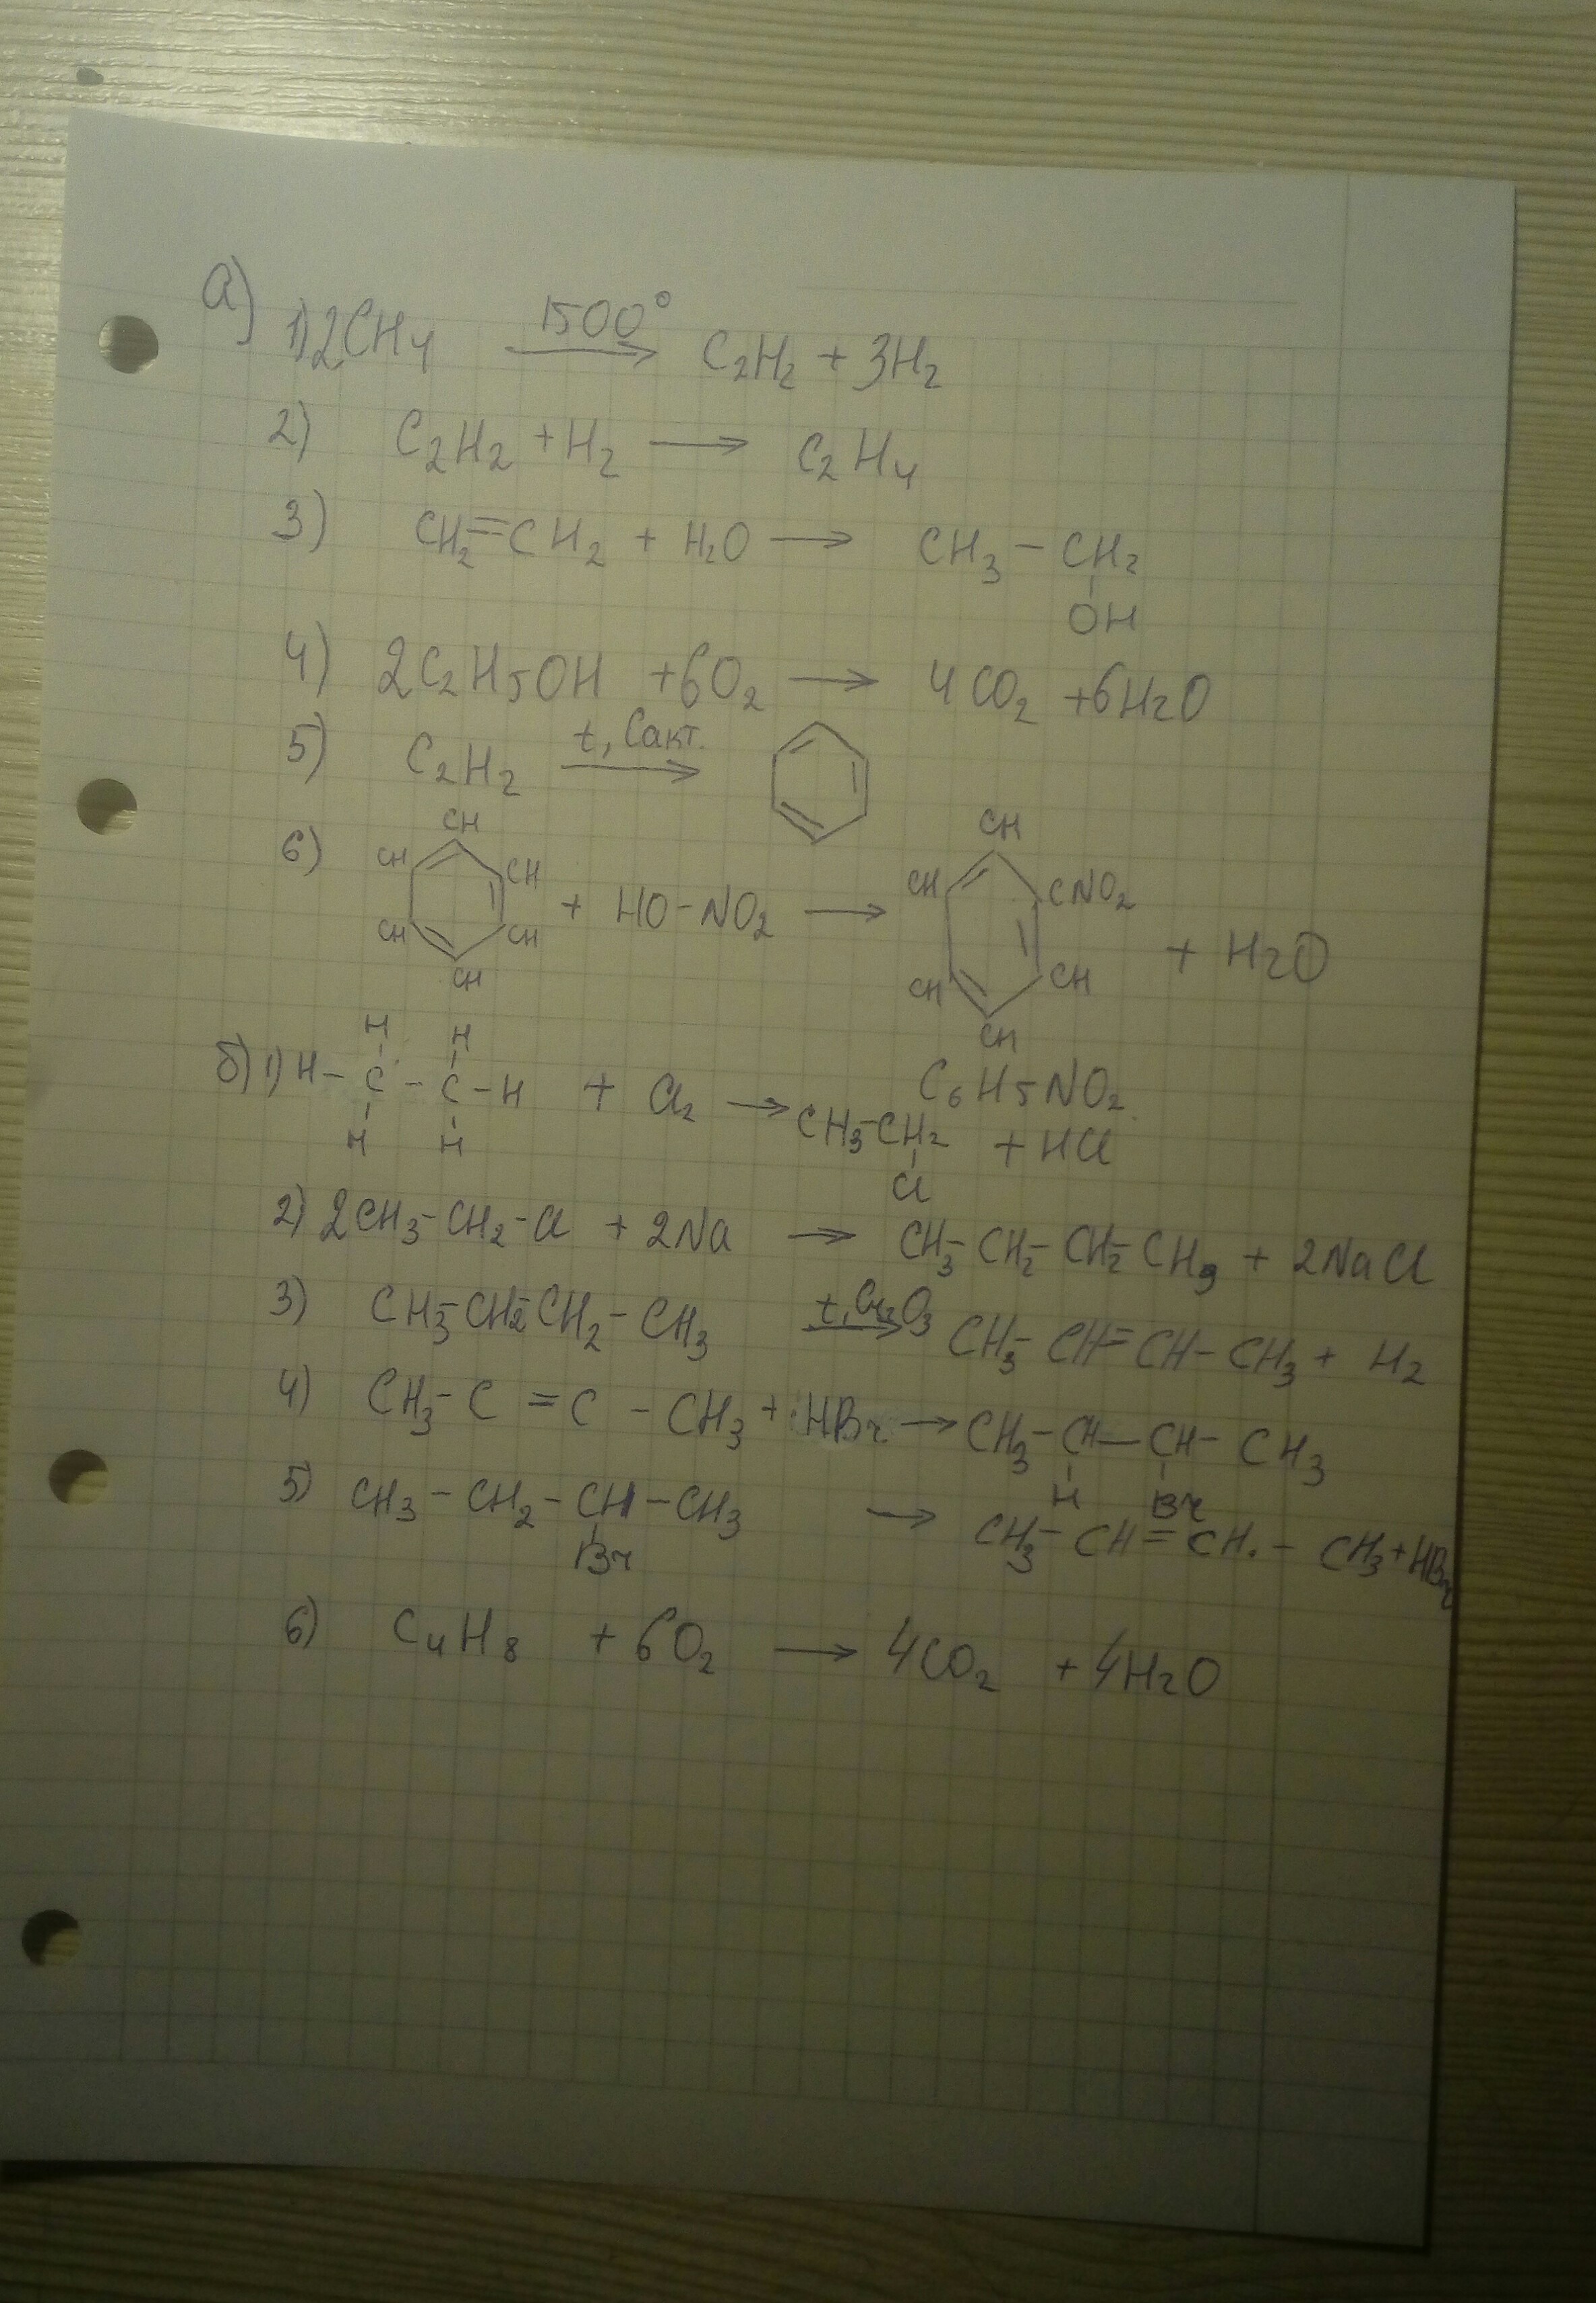 а)
1) 2CH4 1500° → C2H2 + 3H2
2) C2H2 + H2 → C2H4
3) CH2=CH2 + H2O → CH3 - CH2
OH
4) 2C2H5OH + 6O2 → 4CO2 + 6H2O
5) C2H2 t, Cакт. →
6) CH CH CH CH CH CH + HO-NO2 → CH CH CNO2 CH CH CH + H2O
C6H5NO2
H H
б) 1) H - C - C - H + Cl2 → CH3-CH2 + HCl
H H Cl
2) 2CH3-CH2-Cl + 2Na → CH3-CH2-CH2-CH3 + 2NaCl
3) CH3-CH2-CH2-CH3 t, Cr2O3 → CH3-CH=CH-CH3 + H2
4) CH3-C = C - CH3 + HBr → CH3-CH—CH-CH3
H Br
5) CH3 - CH2 - CH - CH3 → CH3-CH=CH. - CH3+HBr
Br
6) C4H8 + 6O2 → 4CO2 + 4H2O